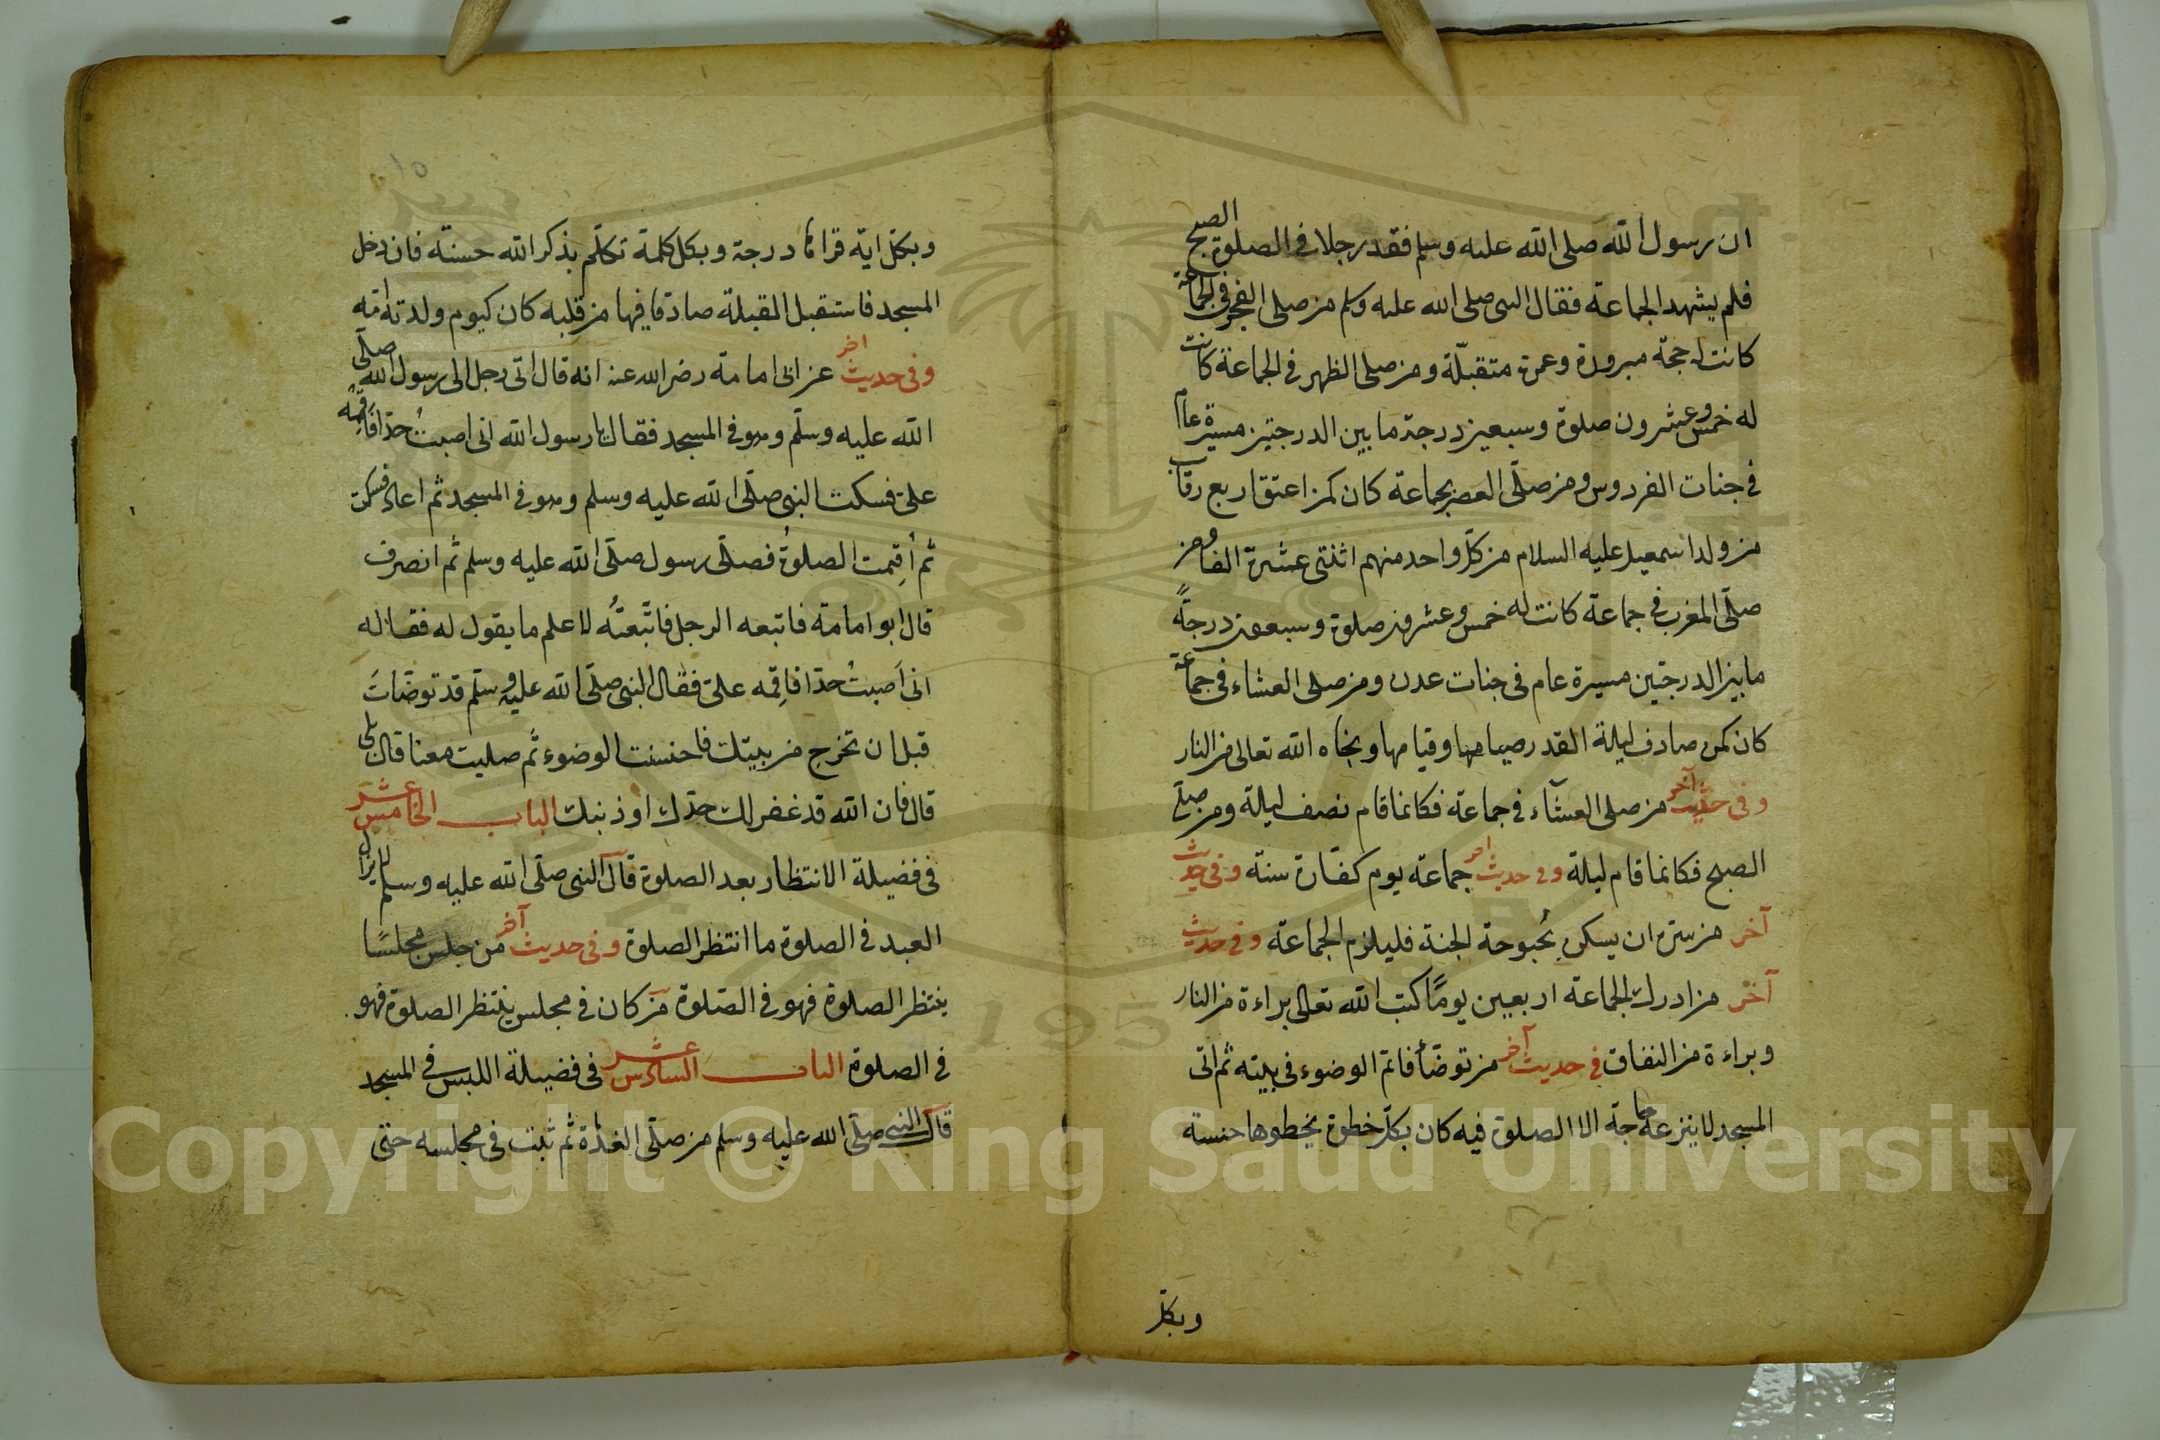 ان رسول الله صلى الله عليه وسلم فقد رجلا فى الصلوة الصبح
فلم يشهد الجماعة فقال النبى صلى الله عليه وسلم من صلى الفجر فى الجماعة
كانت له حجة مبرورة وعمرة متقبلّة ومن صلى الظهر فى الجماعة كانت
له خمس وعشرون صلوة وسبعين درجة ما بين الدرجتين مسيرة عام
فى جنات الفردوس ومن صلّى العصر بجماعة كان كمن اعتق اربع رقاب
من ولد اسمعيل عليه السلام من كلّ واحد منهم اثنتى عشرة الفا ومن
صلّى المغرب فى جماعة كانت له خمس وعشرون صلوة وسبعون درجةً
ما بين الدرجتين مسيرة عام فى جنات عدن ومن صلى العشاء فى جماعة
كان كمن صادف ليلة القدر صيامها وقيامها ونجاه الله تعالى من النار
وفى حديث آخر من صلى العشآء فى جماعة فكانما قام نصف ليلة ومن صلّى
الصبح فكانما قام ليلة وفى حديث اخر جماعة يوم كفّارة سنة وفى حديث
آخر من سرّه ان يسكن بُحبوحة الجنة فليلزم الجماعة وفى حديث
آخر من ادرك الجماعة اربعين يومًا كتب الله تعالى براءة من النار
وبراءة من النفاق فى حديث آخر من توضّأ فاتم الوضوء فى بيته ثم اتى
المسجد لا ينزعه حاجة الا الصلوة فيه كان بكلّ خطوة يخطوها حسنة
وبكلّ
وبكلّ اية قراها درجة وبكل كلمة تكلّم بذكر الله حسنة فان دخل
المسجد فاستقبل القبلة صادقا فيها من قلبه كان كيوم ولدته امّه
وفى حديث اخر عن ابى امامة رضى الله عنه انه قال اتى رجل الى رسول الله صلّى
الله عليه وسلّم وهو فى المسجد فقال يا رسول الله انى اصبتُ حدّا فاَقِمْه
علىّ فسكت النبى صلّى الله عليه وسلم وهو فى المسجد ثم اعاد فسكت
ثم اُقِيمت الصلوةُ فصلّى رسول صلّى الله عليه وسلم ثم انصرف
قال ابو امامة فاتبعه الرجل فاتّبعتُه لاعلم ما يقول له فقال له
انى اَصبتُ حدّا فاقِمْه علىّ فقال النبى صلّى الله عليه وسلّم قد توضّاتَ
قبل ان تخرج من بيتك فاحسنت الوضوء ثم صليت معنا قال بلى
قال فان الله قد غفر لك حدّك او ذنبك الباب الخامس عشر
فى فضيلة الانتظار بعد الصلوة قال النبى صلّى الله عليه وسلم لا يزال
العبد فى الصلوة ما انتظر الصلوة وفى حديث آخر من جلس مجلسًا
ينتظر الصلوة فهو فى الصّلوة من كان فى مجلس ينتظر الصلوة فهو
فى الصلوة الباب السادس عشر فى فضيلة اللبس فى المسجد
قال النبى صلّى الله عليه وسلم من صلّى الغداة ثم ثبت فى مجلسه حتى
Copyright © King Saud University
195